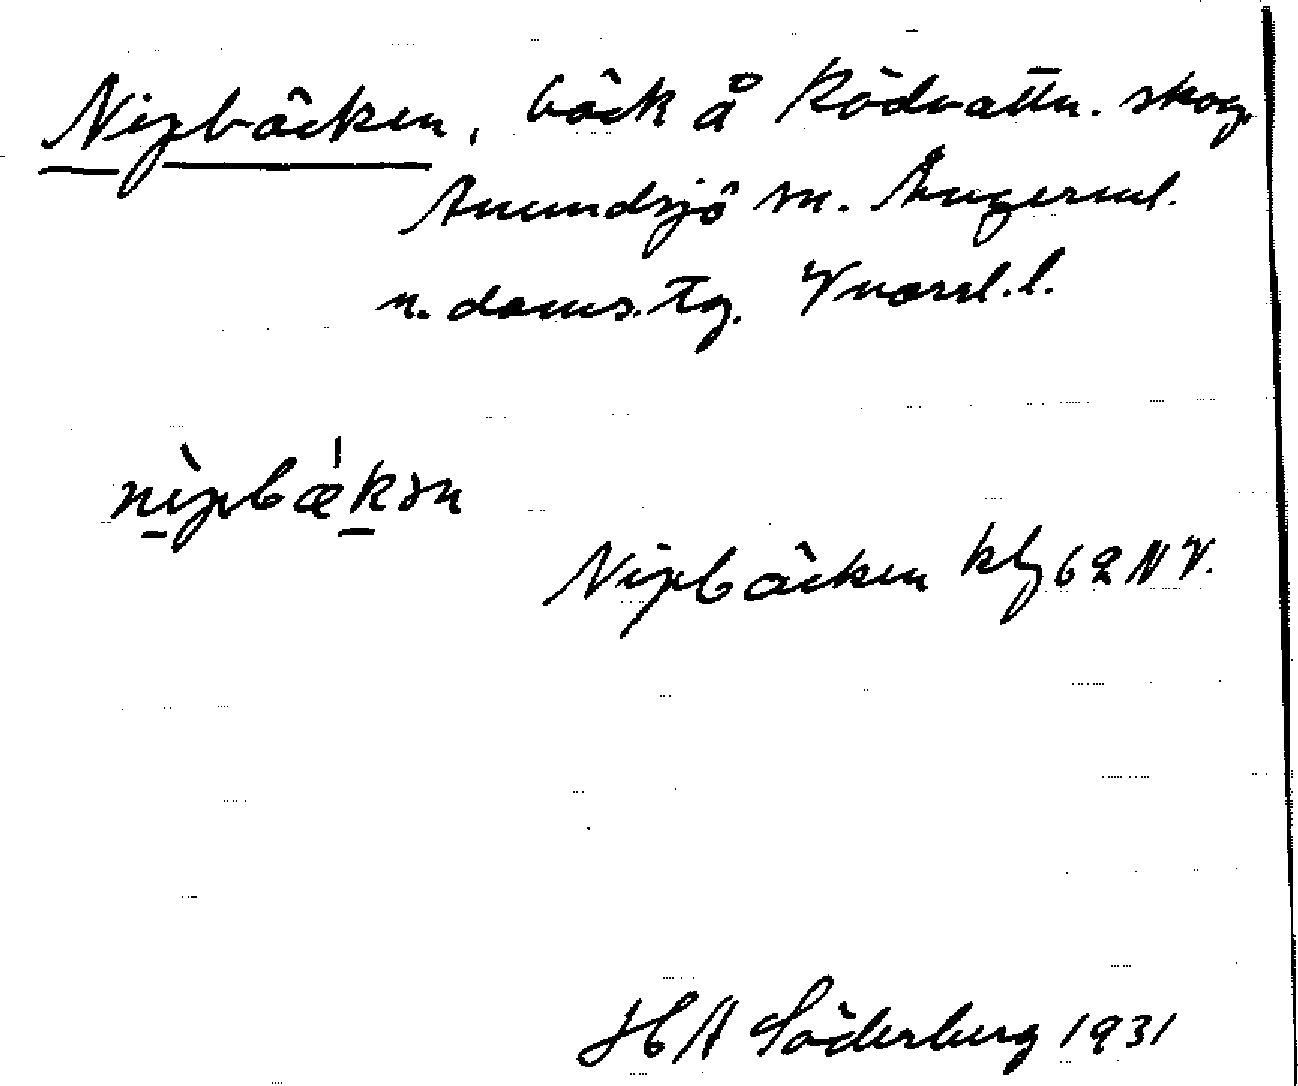 Nipbäcken, bäck å Rödvattn. skog
Anundsjö sn. Ångerml.
n. doms. tg. Vnorrl. l.
nìpbækən
Nipbäcken kbl 62 NV.
H A Söderberg 1931